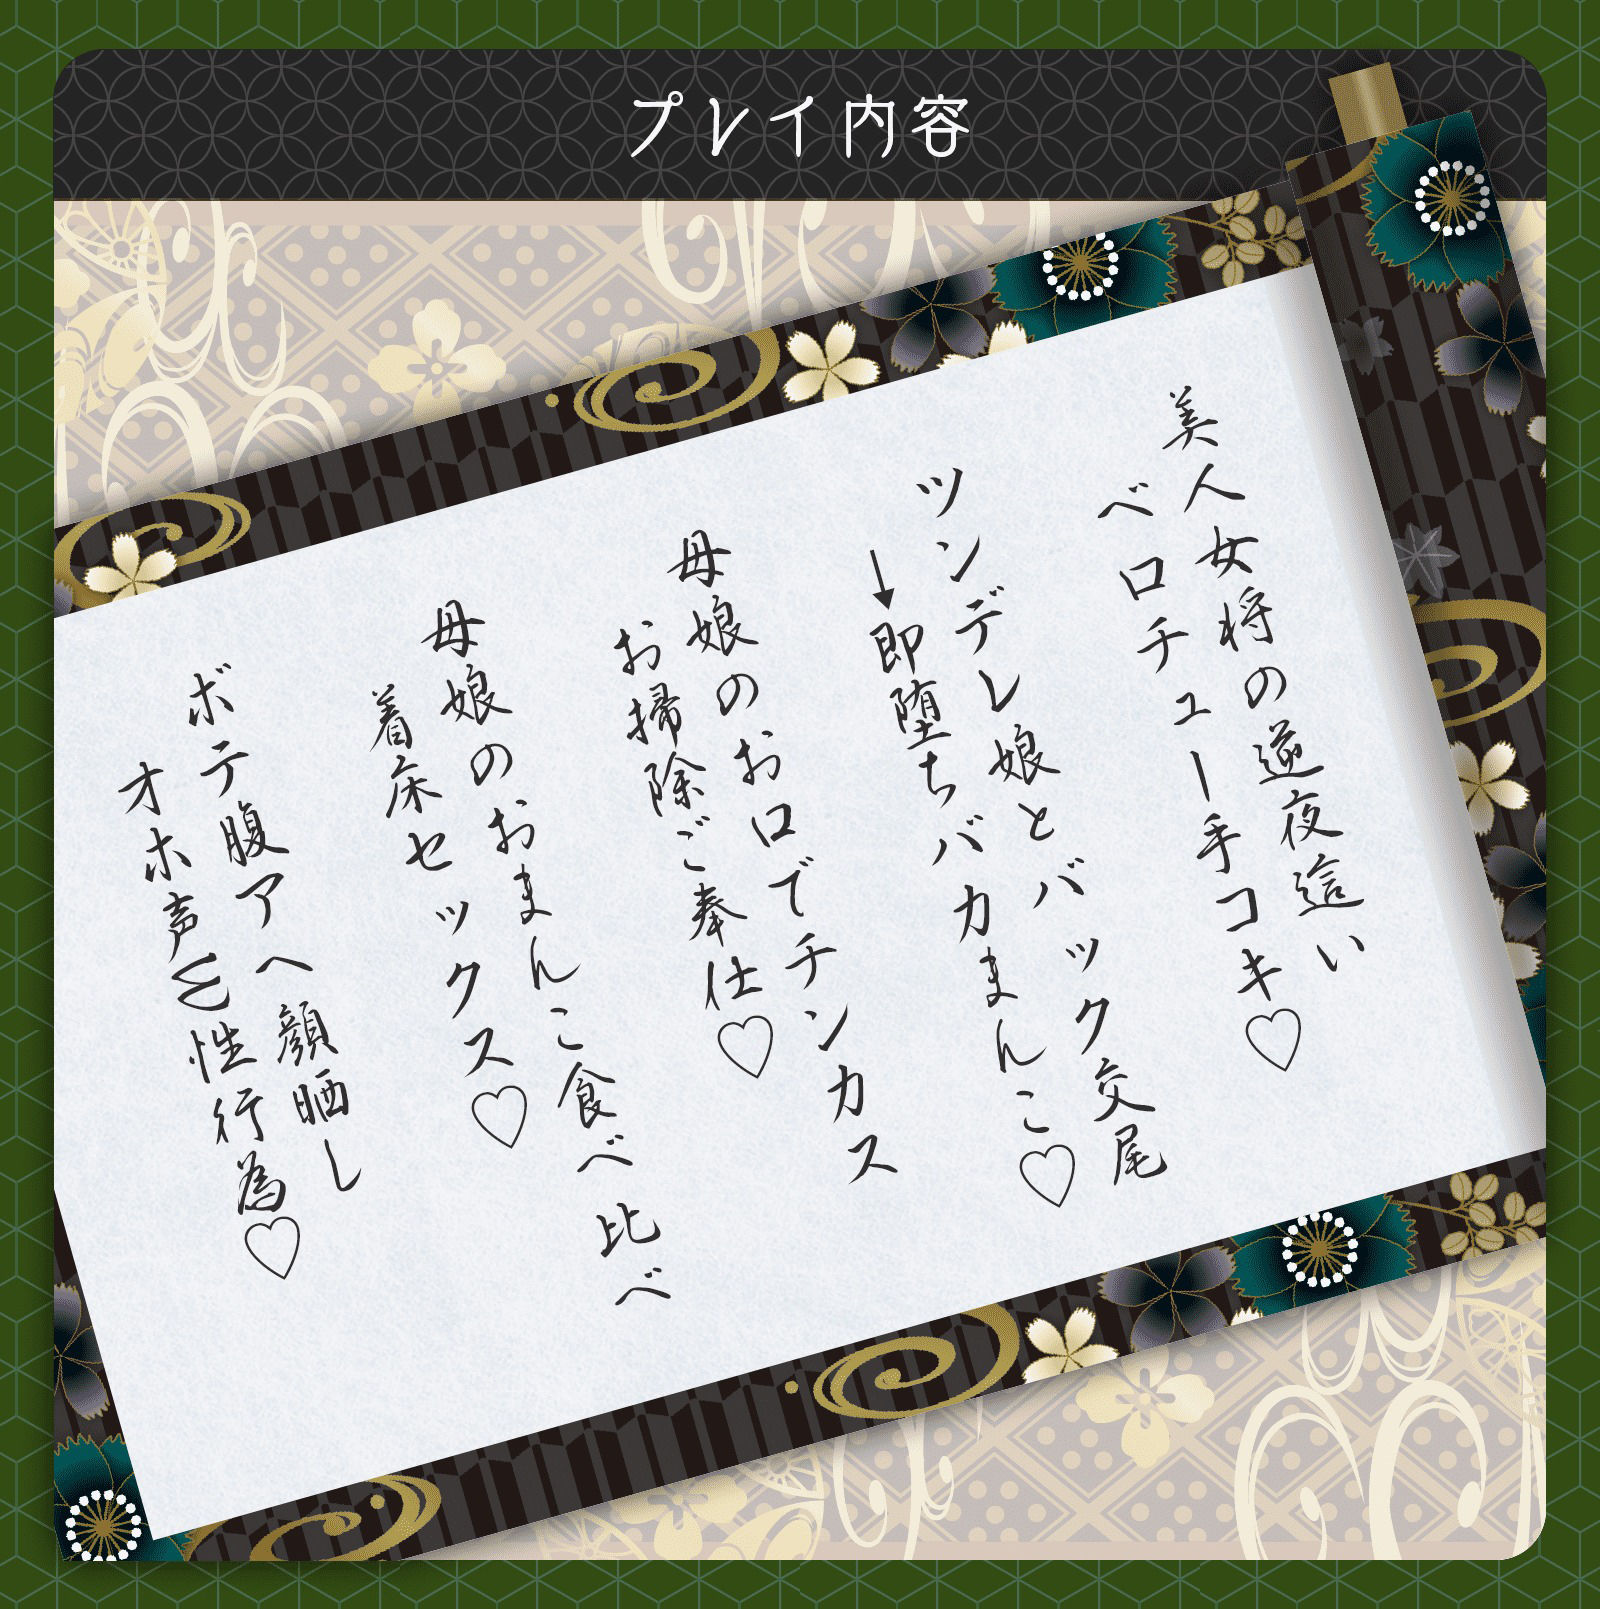 プレイ内容
美人女将の逆夜這い
ベロチュー手コキ♡
ツンデレ娘とバック交尾
→即堕ちバカまんこ♡
母娘のお口でチンカス
お掃除ご奉仕♡
母娘のおまんこ食べ比べ
着床セックス♡
ボテ腹アヘ顔晒し
オホ声ハメ性行為♡